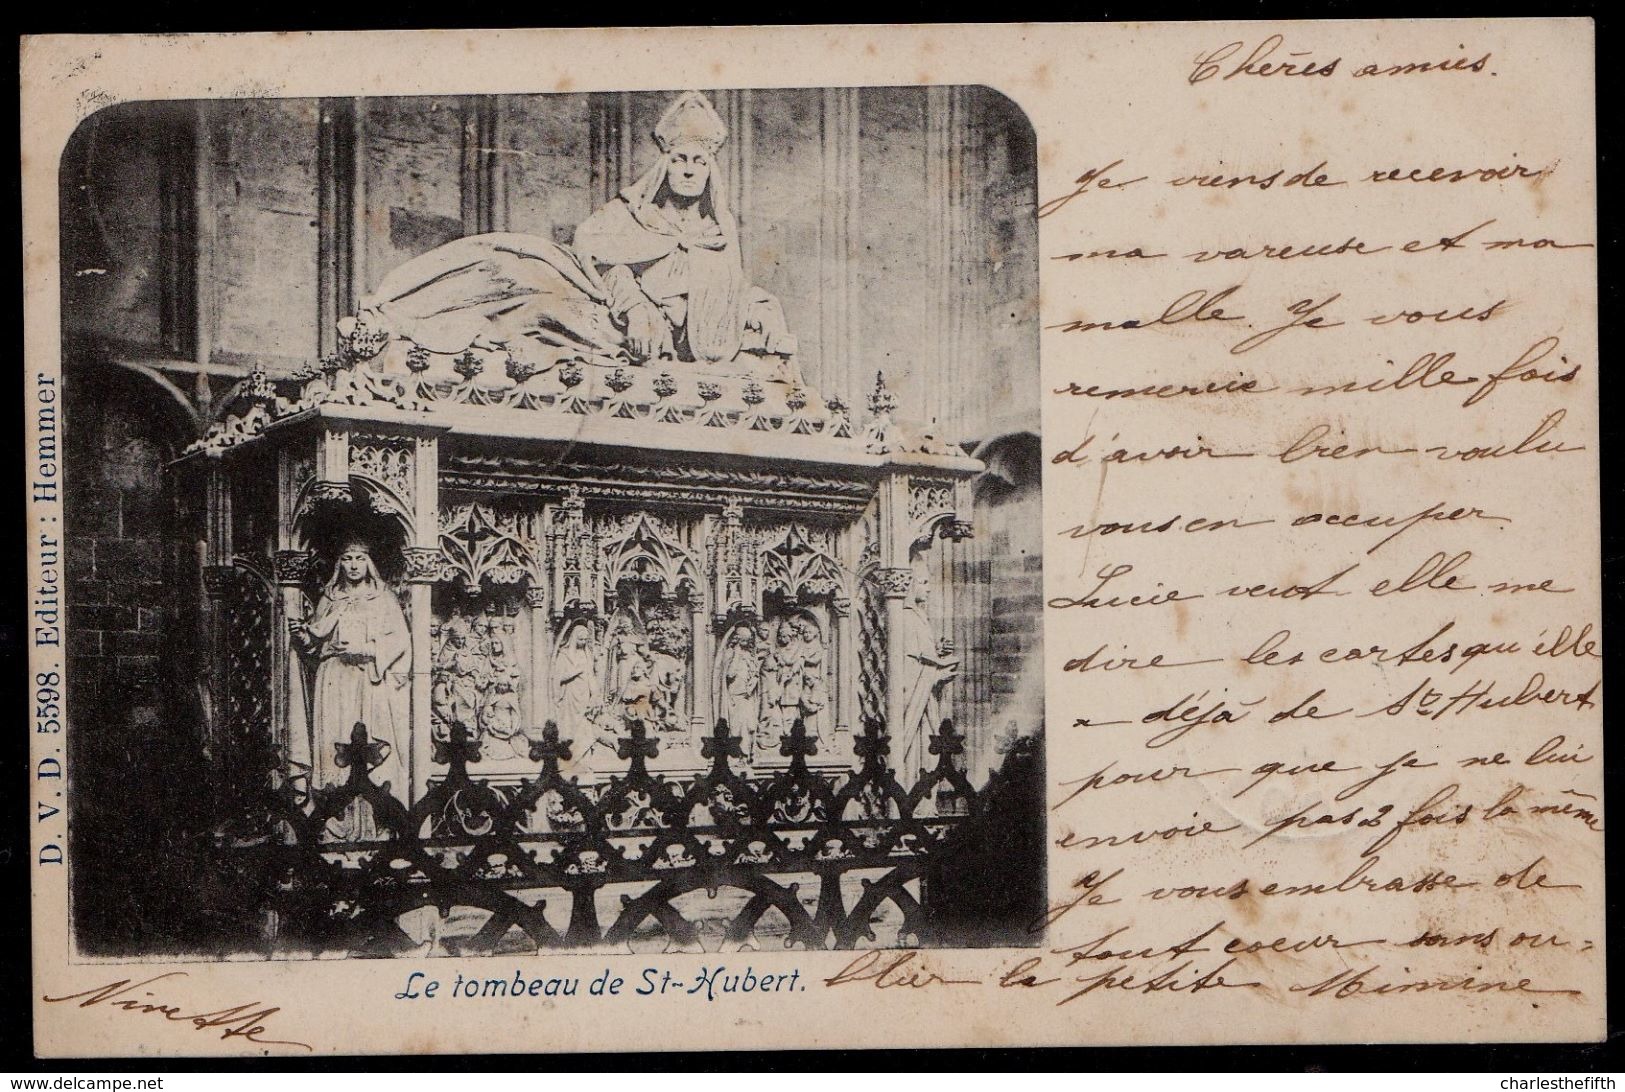 Chères amies.
Je viens de recevoir
ma vareuse et ma
malle. Je vous
remercie mille fois
d'avoir bien voulu
vous en occuper.
Lucie veut elle me
dire les cartes qu'elle
a déjà de St Hubert
pour que je ne lui
envoie pas 2 fois la même
Je vous embrasse de
tout coeur sans ou=
blier la petite Mimine
Ninette
Le tombeau de St-Hubert.
D. V. D. 5598. Editeur: Hemmer
delcampe.net
charlesthefifth